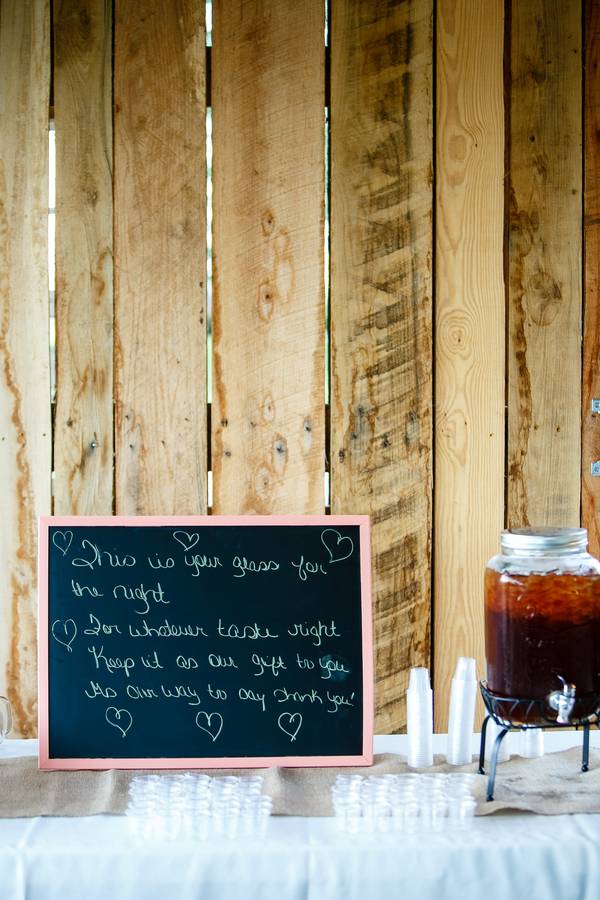 This is your glass for
the night
For whatever taste right
Keep it as our gift to you
As our way to say thank you!